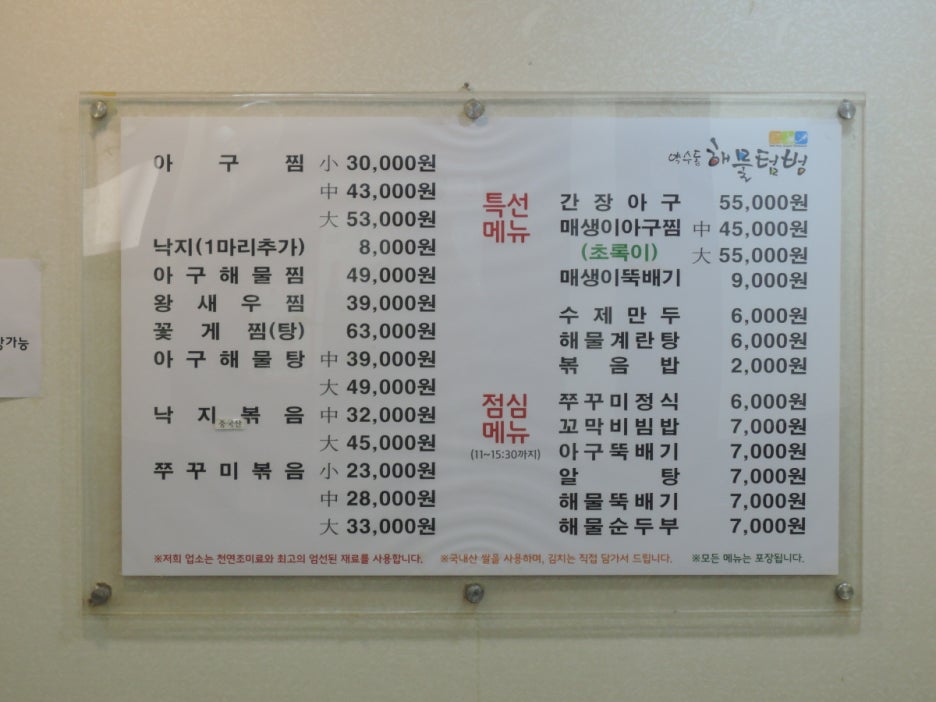 아구찜 小 30,000원
中 43,000원
大 53,000원
낙지(1마리추가) 8,000원
아구해물찜 49,000원
왕새우찜 39,000원
꽃게찜(탕) 63,000원
아구해물탕 中 39,000원
大 49,000원
낙지볶음 中 32,000원
중국산
大 45,000원
쭈꾸미볶음 小 23,000원
中 28,000원
大 33,000원
약수동 해물텀벙
특선
메뉴
간장아구 55,000원
매생이아구찜 中 45,000원
(초록이) 大 55,000원
매생이뚝배기 9,000원
수제만두 6,000원
해물계란탕 6,000원
볶음밥 2,000원
점심
메뉴
(11~15:30까지)
쭈꾸미정식 6,000원
꼬막비빔밥 7,000원
아구뚝배기 7,000원
알탕 7,000원
해물뚝배기 7,000원
해물순두부 7,000원
※저희 업소는 천연조미료와 최고의 엄선된 재료를 사용합니다. ※국내산 쌀을 사용하며, 김치는 직접 담가서 드립니다. ※모든 메뉴는 포장됩니다.